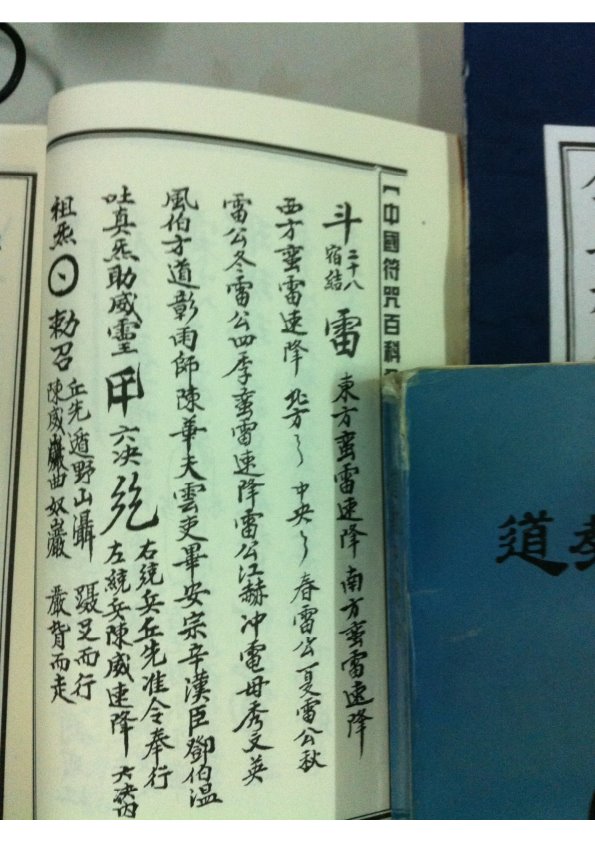 【中國符咒百科
斗 二十八宿結 雷 東方蛮雷速降 南方蛮雷速降
西方蛮雷速降 北方〻 中央〻 春雷公夏雷公秋
雷公冬雷公四季蛮雷速降雷公江赫冲電母秀文英
風伯方道彰雨師陳華夫雲吏畢安宗辛漢臣鄧伯温
吐真炁助威靈 甲 六决 統 右統兵丘先准令奉行 左統兵陳威速降
祖炁 敕召 丘先遁野山灄 陳威曲奴巖 躡足而行 嚴背而走
道教